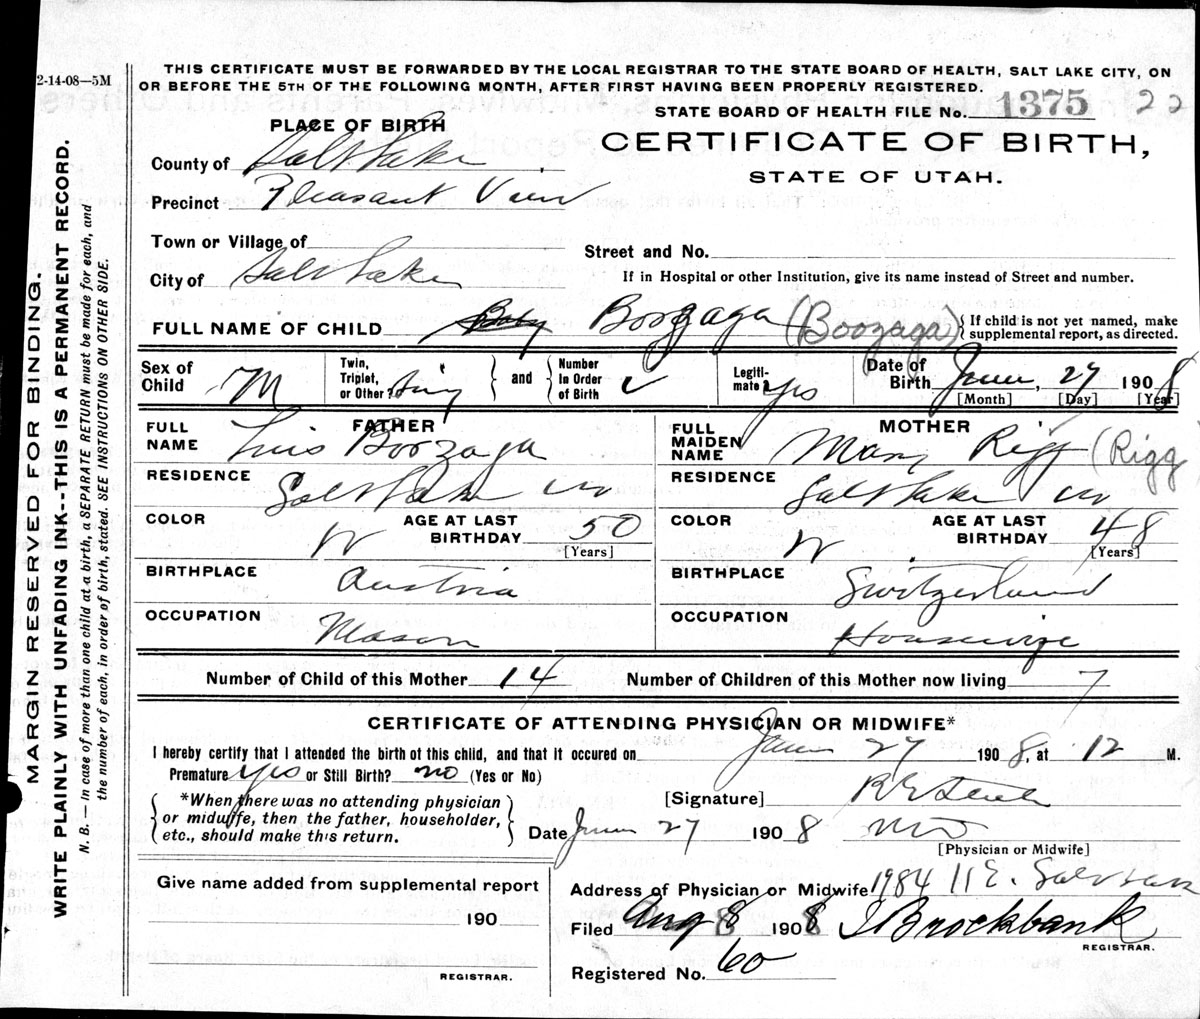 2-14-08—5M
THIS CERTIFICATE MUST BE FORWARDED BY THE LOCAL REGISTRAR TO THE STATE BOARD OF HEALTH, SALT LAKE CITY, ON
OR BEFORE THE 5TH OF THE FOLLOWING MONTH, AFTER FIRST HAVING BEEN PROPERLY REGISTERED.
STATE BOARD OF HEALTH FILE No. 1375 22
CERTIFICATE OF BIRTH,
STATE OF UTAH.
PLACE OF BIRTH
County of Salt Lake
Precinct Pleasant View
Town or Village of
City of Salt Lake
Street and No.
If in Hospital or other Institution, give its name instead of Street and number.
FULL NAME OF CHILD Baby Boozaga (Boozaga) { If child is not yet named, make
supplemental report, as directed.
Sex of Child M
Twin, Triplet, or Other? Sing } and { Number In Order of Birth
Legiti- mate? yes
Date of Birth June, 27 1908
[Month] [Day] [Year]
FATHER
FULL NAME Luis Boozaga
RESIDENCE Salt Lake
COLOR W AGE AT LAST BIRTHDAY 50
[Years]
BIRTHPLACE Austria
OCCUPATION Mason
MOTHER
FULL MAIDEN NAME Mary Rigg (Rigg)
RESIDENCE Salt Lake
COLOR W. AGE AT LAST BIRTHDAY 48
[Years]
BIRTHPLACE Switzerland
OCCUPATION Housewife
Number of Child of this Mother 14 Number of Children of this Mother now living 7
CERTIFICATE OF ATTENDING PHYSICIAN OR MIDWIFE*
I hereby certify that I attended the birth of this child, and that it occured on June 27 1908, at 12 M.
Premature yes or Still Birth? no (Yes or No)
{ *When there was no attending physician
or midwife, then the father, householder,
etc., should make this return. }
[Signature]
Date June 27 1908 MD
[Physician or Midwife]
Give name added from supplemental report
190
REGISTRAR.
Address of Physician or Midwife 1984 11 E. Salt Lake
Filed Aug 8 1908 Brockbank
REGISTRAR.
Registered No. 60
MARGIN RESERVED FOR BINDING.
WRITE PLAINLY WITH UNFADING INK--THIS IS A PERMANENT RECORD.
N. B.— In case of more than one child at a birth, a SEPARATE RETURN must be made for each, and
the number of each, in order of birth, stated. SEE INSTRUCTIONS ON OTHER SIDE.